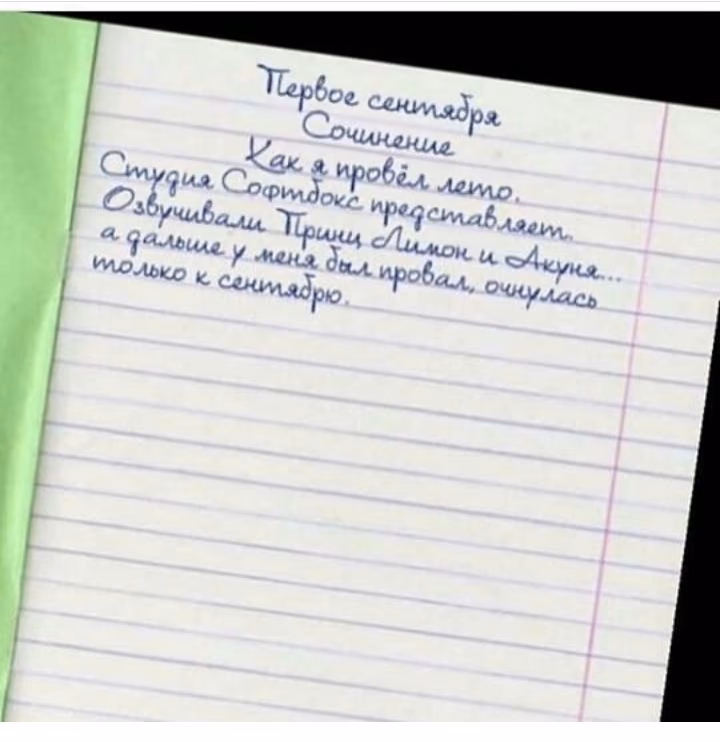 Первое сентября
Сочинение
Как я провёл лето.
Студия Софтбокс представляет.
Озвучивали Принц Лимон и Акуня...
а дальше у меня был провал, очнулась
только к сентябрю.